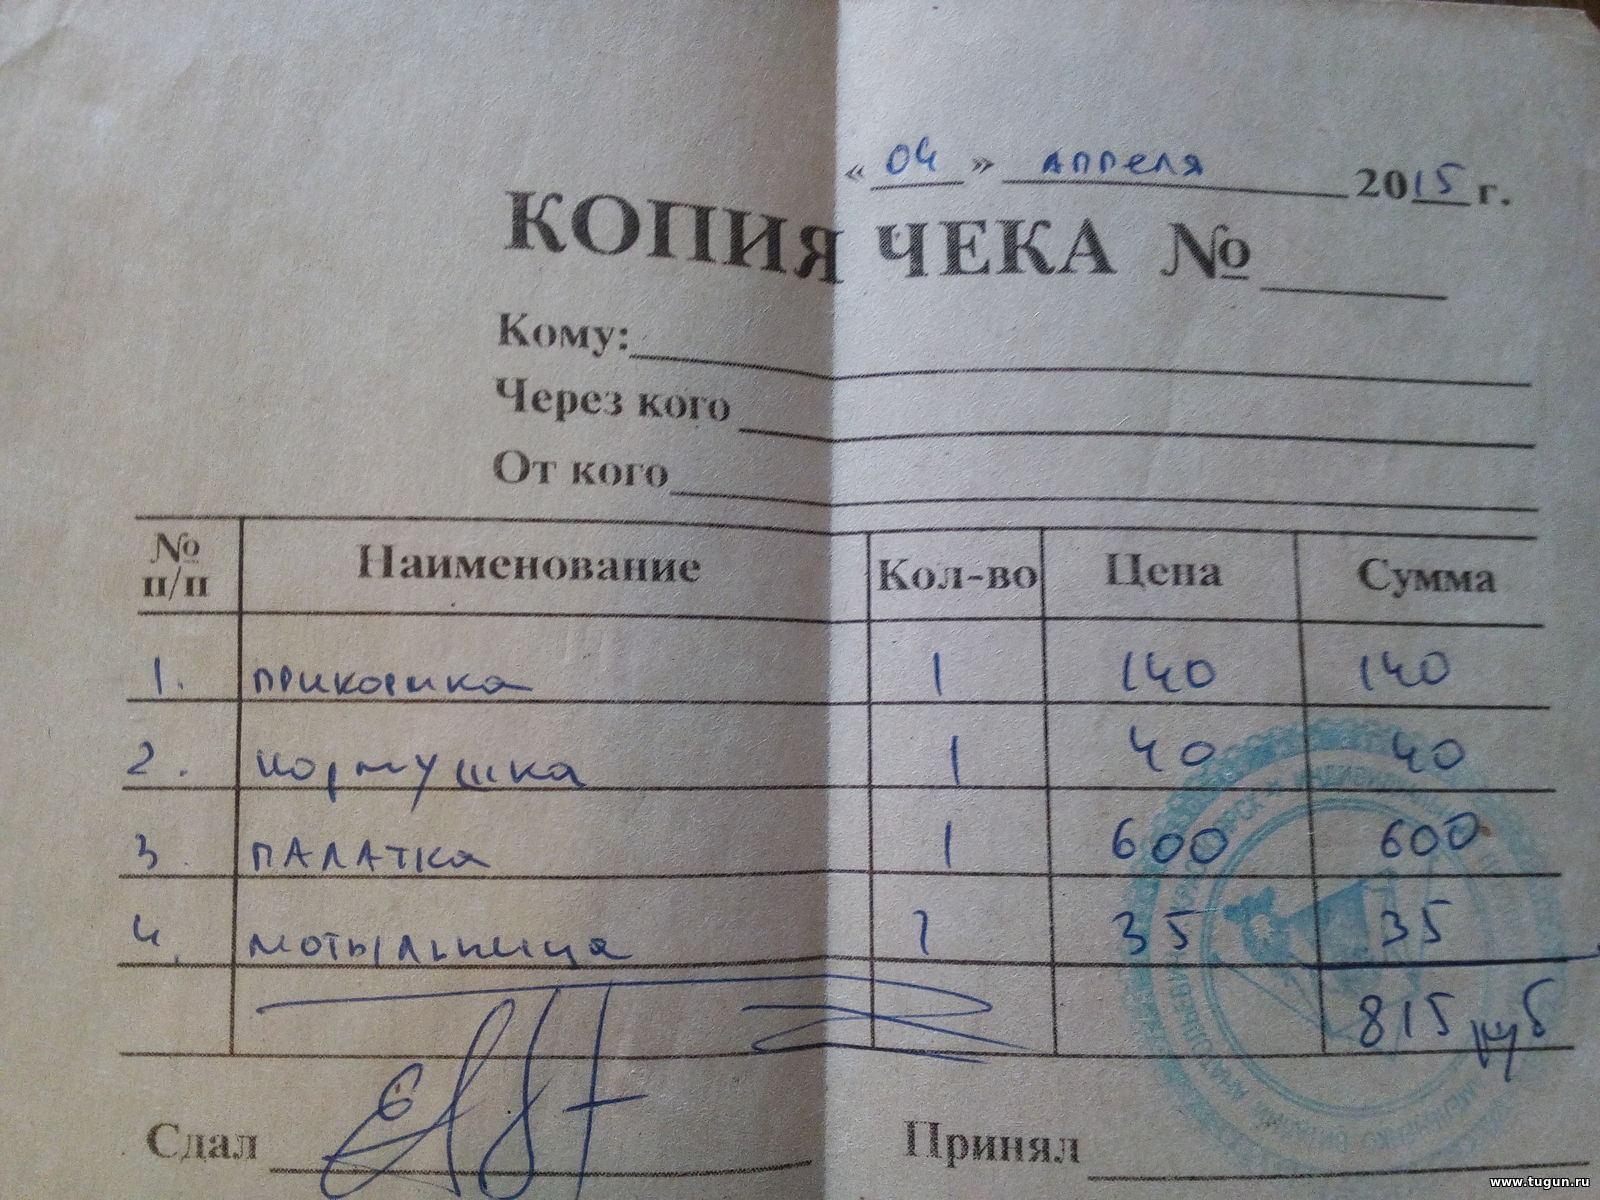 « 04 » аппеля 2015 г.
КОПИЯ ЧЕКА №
Кому:
Через кого
От кого
№ п/п Наименование Кол-во Цена Сумма
1. прикормка 1 140 140
2. кормушка 1 40 40
3. палатка 1 600 600
4. мотыльница 1 35 35
815 руб
Сдал Принял
www.tugun.ru